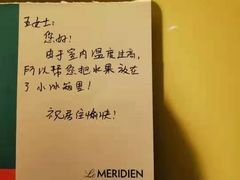 王女士：
您好！
由于室内温度过高，
所以帮您把水果放在
了小冰箱里！
祝居住愉快！
Le MERIDIEN